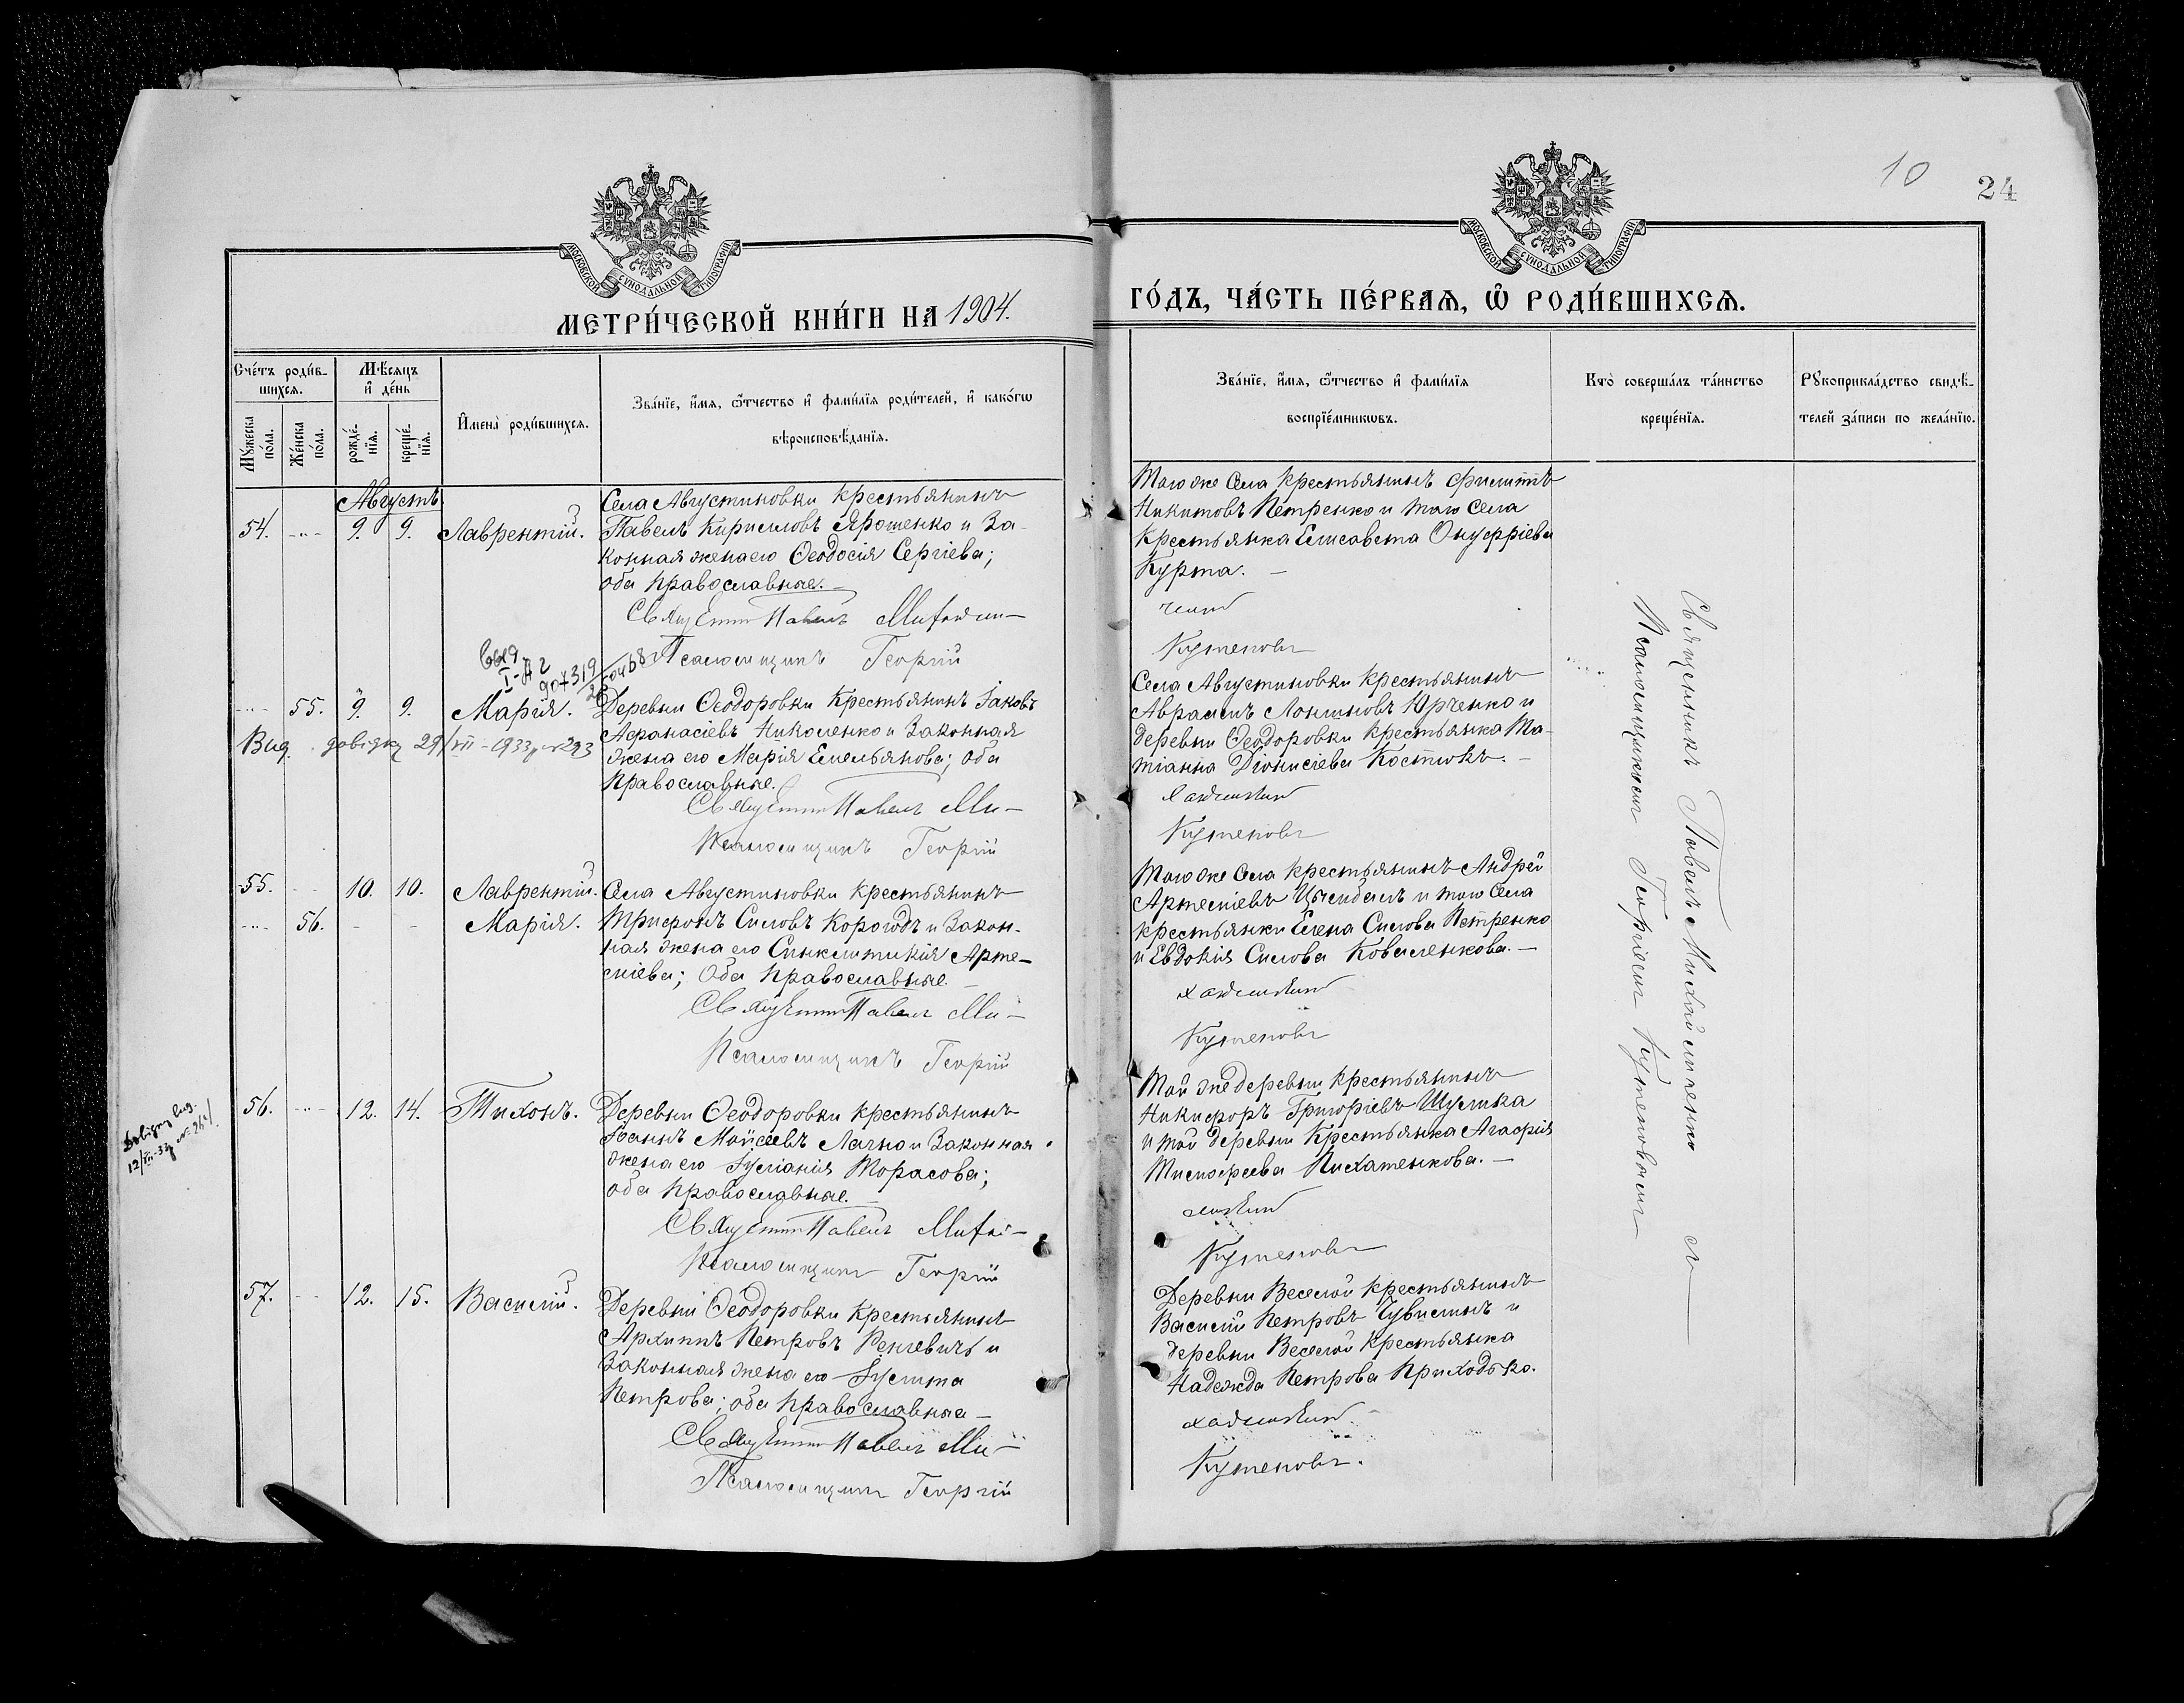 10
24
МОСКОВСКОЙ СѴНОДАЛЬНОЙ ТИПОГРАФІИ
МОСКОВСКОЙ СѴНОДАЛЬНОЙ ТИПОГРАФІИ
МЕТРИ́ЧЕСКОЙ КНИ́ГИ НА 1904.
ГО́ДЪ, ЧА́СТЬ ПЕ́РВАЯ, Ѽ РОДИ́ВШИХСѦ.
Сче́тъ роди́в-
шихся.
Му́жеска по́ла.
Же́нска по́ла.
Мѣ́сяцъ
и҆ де́нь
рожде́-
нїя.
креще́-
нїя.
И҆мена̀ роди́вшихся.
Зва́нїе, и҆́мя, ѻ҆́тчество и҆ фами́лїя роди́телей, и҆ како́гѡ
вѣроисповѣ́данїя.
Зва́нїе, и҆́мя, ѻ҆́тчество и҆ фами́лїя
воспрїе́мникѡвъ.
Кто̀ соверша́лъ та́инство
креще́нїя.
Рꙋкоприкла́дство свидѣ́-
телей за́писи по жела́нїю.
Августъ
54. 9. 9. Лаврентій.
Села Августиновки крестьянинъ
Павелъ Кирилловъ Ярошенко и За-
конная жена его Ѳеодосія Сергіева;
оба православные.
Священникъ Павелъ
Псаломщикъ Георгій
Того же Села крестьянинъ Филиппъ
Никитовъ Петренко и того Села
крестьянка Елисавета Онуфріева
Курта.
Кутеповъ
55. 9. 9. Марія.
Вид. довідку 29/VII-1933 р № 293
Деревни Ѳеодоровки Крестьянинъ Іаковъ
Афанасіевъ Николенко и Законная
жена его Марія Емельянова; оба
православные.
Священникъ Павелъ Ми-
Псаломщикъ Георгій
Села Августиновки крестьянинъ
Авраамъ Лонгиновъ Юрченко и
деревни Ѳеодоровки крестьянка Та-
тіанна Діонисіева Костюкъ.
хайленко
Кутеповъ
55. 10. 10. Лаврентій.
56. Марія.
Села Августиновки крестьянинъ
Трифонъ Силовъ Корогодъ и Закон-
ная жена его Синклитикія Арте-
міева; оба православные.
Священникъ Павелъ Ми-
Псаломщикъ Георгій
Того же Села крестьянинъ Андрей
Артеміевъ Цымбалъ и того Села
крестьянки Елена Силова Петренко
и Евдокія Силова Коваленкова.
хайленко
Кутеповъ
Довідку вид.
56. 12. 14. Тихонъ.
Деревни Ѳеодоровки крестьянинъ
Іоаннъ Моисеевъ Лачно и Законная
жена его Іуліанія Торасова;
оба православные.
Священникъ Павелъ
Псаломщикъ Георгій
Той же деревни крестьянинъ
Никифоръ Григоріевъ Шулика
и той деревни Крестьянка Агафія
Тимофеева Пихатенкова.
Кутеповъ
57. 12. 15. Василій.
Деревни Ѳеодоровки Крестьянинъ
Архиппъ Петровъ Ренгевичъ и
Законная жена его Іулитта
Петрова; оба православные
Священникъ Павелъ Ми-
Псаломщикъ Георгій
Деревни Веселой крестьянинъ
Василій Петровъ Чувилинъ и
деревни Веселой Крестьянка
Надежда Петрова Приходько.
хайленко
Кутеповъ.
Священникъ Павелъ Михайленко
Псаломщикомъ Георгіемъ Кутеповымъ